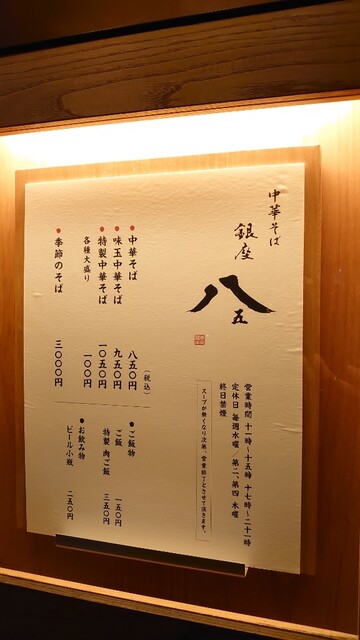 中華そば
銀座
八五
営業時間 十一時〜十五時 十七時〜二十一時
定休日 毎週水曜/第二、第四 木曜
終日禁煙
スープが無くなり次第、営業終了とさせて頂きます。
(税込)
●中華そば 八五〇円
●味玉中華そば 九五〇円
●特製中華そば 一〇五〇円
各種大盛り 一〇〇円
●季節のそば 三〇〇〇円
●ご飯物
ご飯 一五〇円
特製 肉ご飯 三五〇円
●お飲み物
ビール小瓶 二五〇円